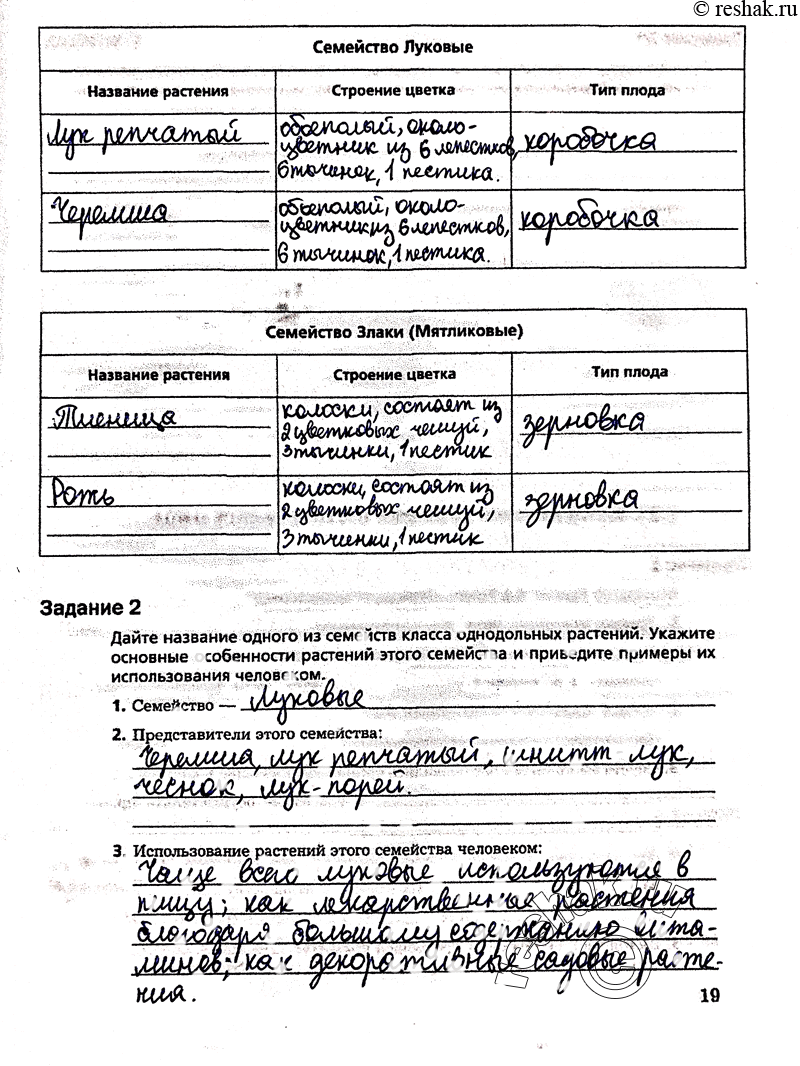 © reshak.ru
Семейство Луковые
Название растения Строение цветка Тип плода
Лук репчатый
обоеполый, около-
цветник из 6 лепестков,
6 тычинок, 1 пестика.
коробочка
Черемша
обоеполый, около-
цветник из 6 лепестков,
6 тычинок, 1 пестика.
коробочка
Семейство Злаки (Мятликовые)
Название растения Строение цветка Тип плода
Пшеница
колоски, состоят из
2 цветковых чешуй,
3 тычинки, 1 пестик
зерновка
Рожь
колоски, состоят из
2 цветковых чешуй,
3 тычинки, 1 пестик
зерновка
Задание 2
Дайте название одного из семейств класса однодольных растений. Укажите
основные собенности растений этого семейства и приведите примеры их
использования человеком.
1. Семейство — Луковые
2. Представители этого семейства:
Черемша, лук репчатый, шнитт лук,
чеснок, лук-порей.
3. Использование растений этого семейства человеком:
Чаще всего луковые используются в
пищу; как лекарственные растения
благодаря большому содержанию вита-
минов; как декоративные садовые расте-
ния.
19